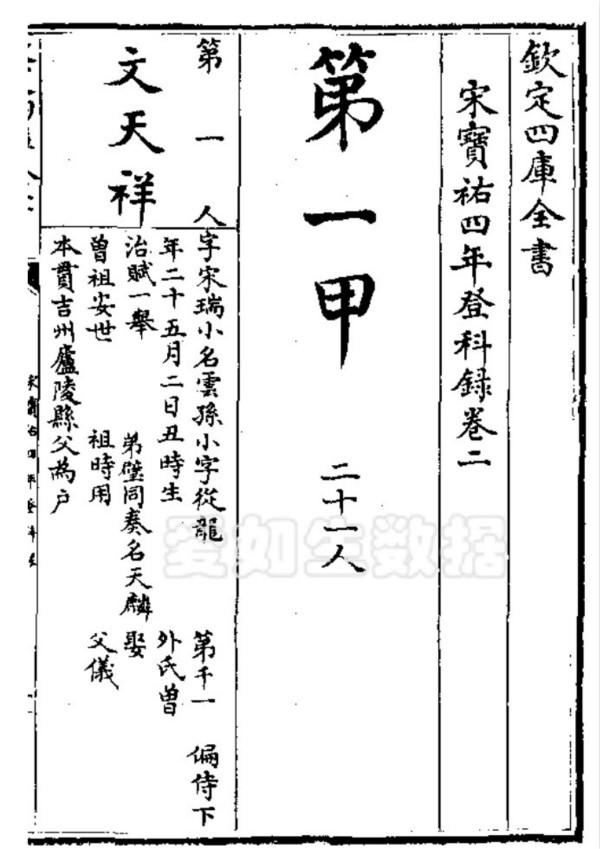 欽定四庫全書
宋寶祐四年登科録卷二
第一甲 二十一人
第一人
文天祥
字宋瑞小名雲孫小字從龍 第千一 偏侍下
年二十五月二日丑時生 外氏曾
治賦一舉 弟璧同奏名天麟 娶
曾祖安世 祖時用 父儀
本貫吉州廬陵縣父為户
愛如生数据